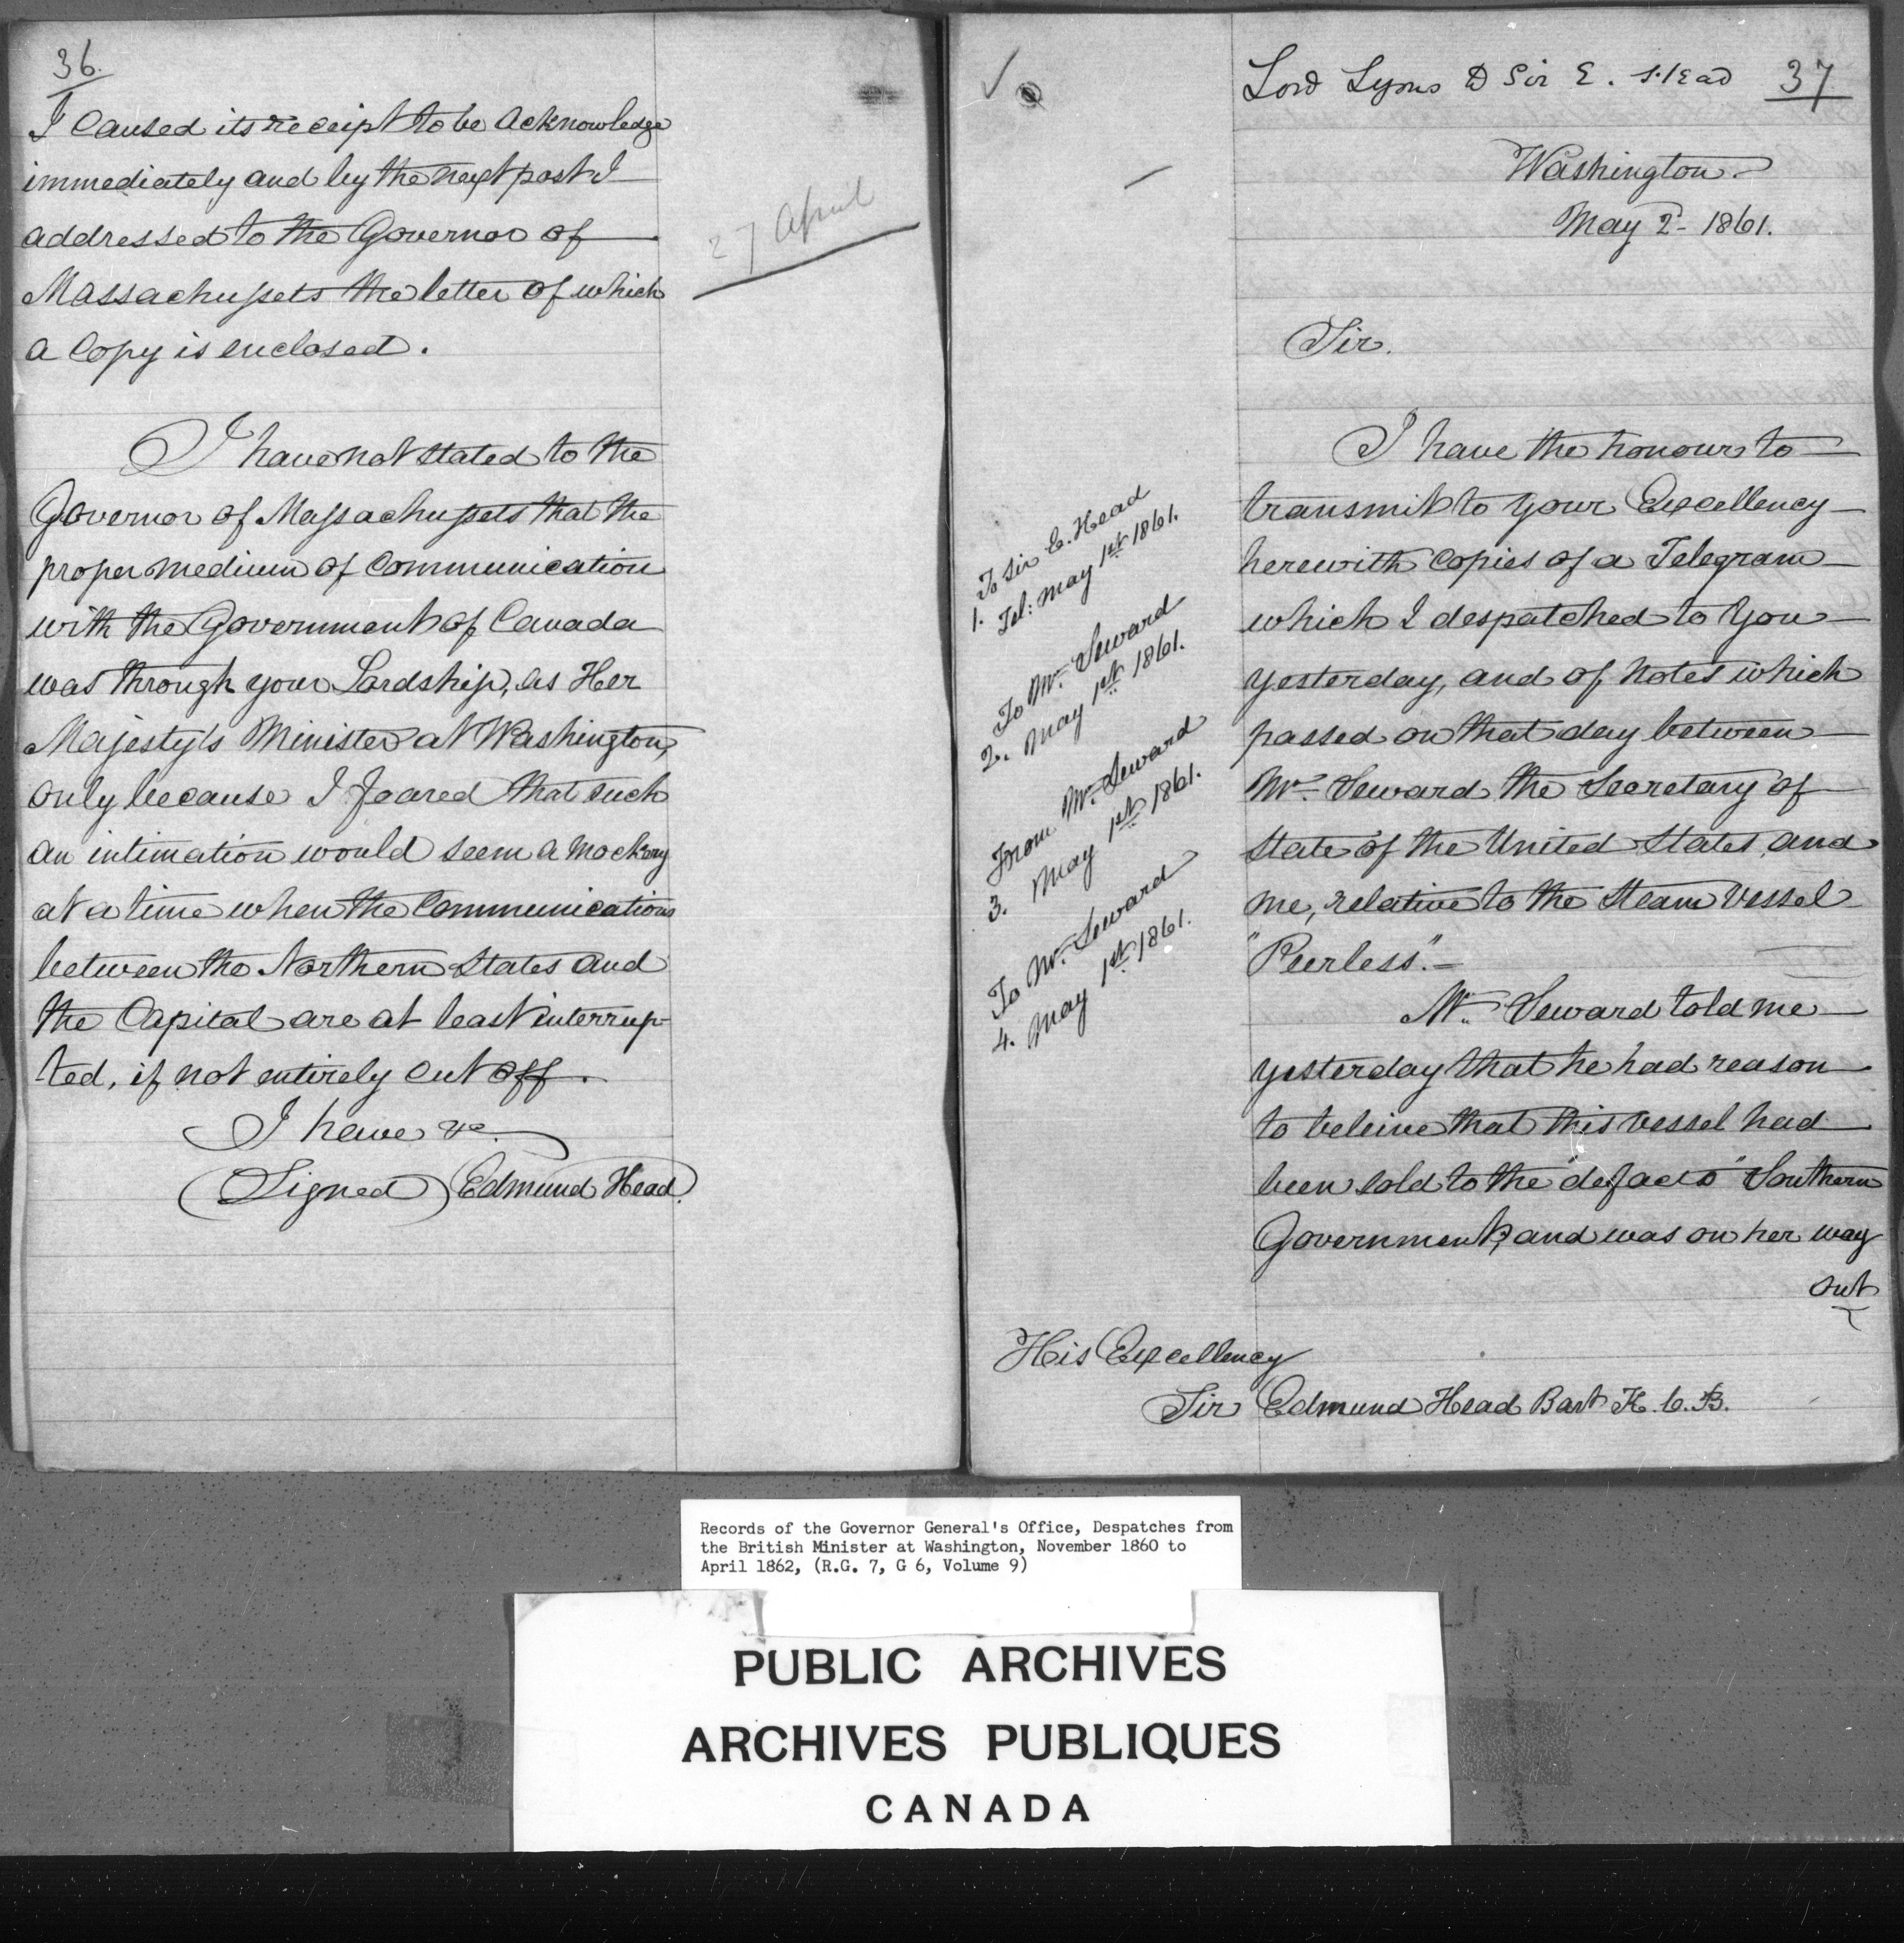 36.
I caused its receipt to be acknowledge
immediately and by the next post I
addressed to the Governor of
Massachussets the letter of which
a Copy is enclosed.
27 April
I have not stated to the
Governor of Massachussets that the
proper medium of Communication
with the Government of Canada
was through your Lordship, as Her
Majesty's Minister at Washington,
only because I feared that such
an intimation would seem a mockery
at a time when the Communications
between the Northern States and
the Capital are at least interrup-
ted, if not entirely cut off.
I have &c.
(Signed) Edmund Head.
Lord Lyons to Sir E. Head 37
Washington
May 2d 1861.
Sir.
I have the honour to
transmit to your Excellency
herewith Copies of a Telegram
which I despatched to You
yesterday, and of notes which
passed on that day between
Mr. Seward the Secretary of
State of the United States, and
me, relative to the Steam Vessel
"Peerless".
Mr. Seward told me
yesterday that he had reason
to beleive that this vessel had
been sold to the "defacto" Southern
Government, and was on her way
out
1. To Sir E. Head
Tel: May 1st 1861.
2. To Mr. Seward
May 1st 1861.
3. From Mr. Seward
May 1st 1861.
4. To Mr. Seward
May 1st 1861.
His Excellency
Sir Edmund Head Bart K.C.B.
Records of the Governor General's Office, Despatches from
the British Minister at Washington, November 1860 to
April 1862, (R.G. 7, G 6, Volume 9)
PUBLIC ARCHIVES
ARCHIVES PUBLIQUES
CANADA